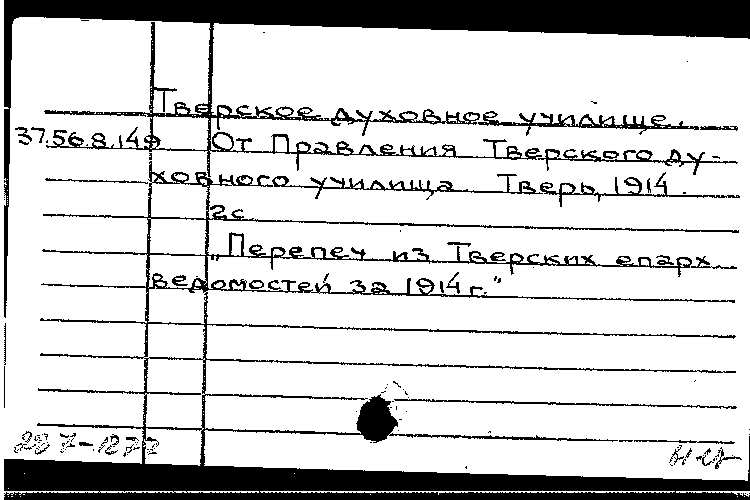 Тверское духовное училище.
37.56.8.149 От Правления Тверского ду-
ховного училища. Тверь, 1914.
2с.
„Перепеч из Тверских епарх
ведомостей за 1914 г."